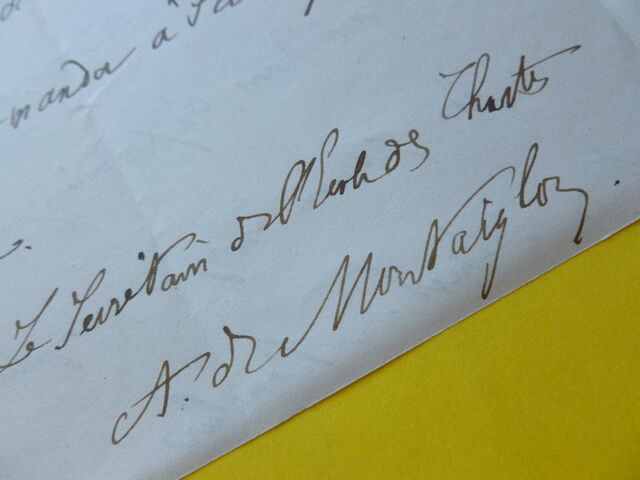 à
Le Secrétaire de l'Ecole des Chartes
A. de Montaiglon.